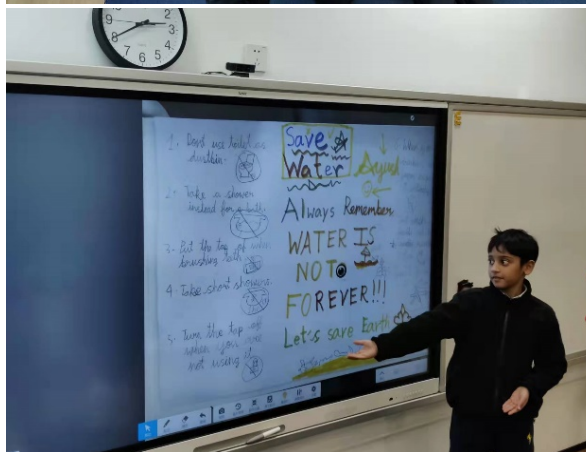 12
2
3
4
5
6
7
8
9
10
1. Dont use toilet as
dustbin.
2. Take a shower
instead for a bath.
3. Put the tap off when
brushing teeth
4. Take short showers.
5. Turn the tap off
when you are
not using it.
Save
Water
Always Remember
WATER IS
NOT
FOREVER!!!
Let's save Earth